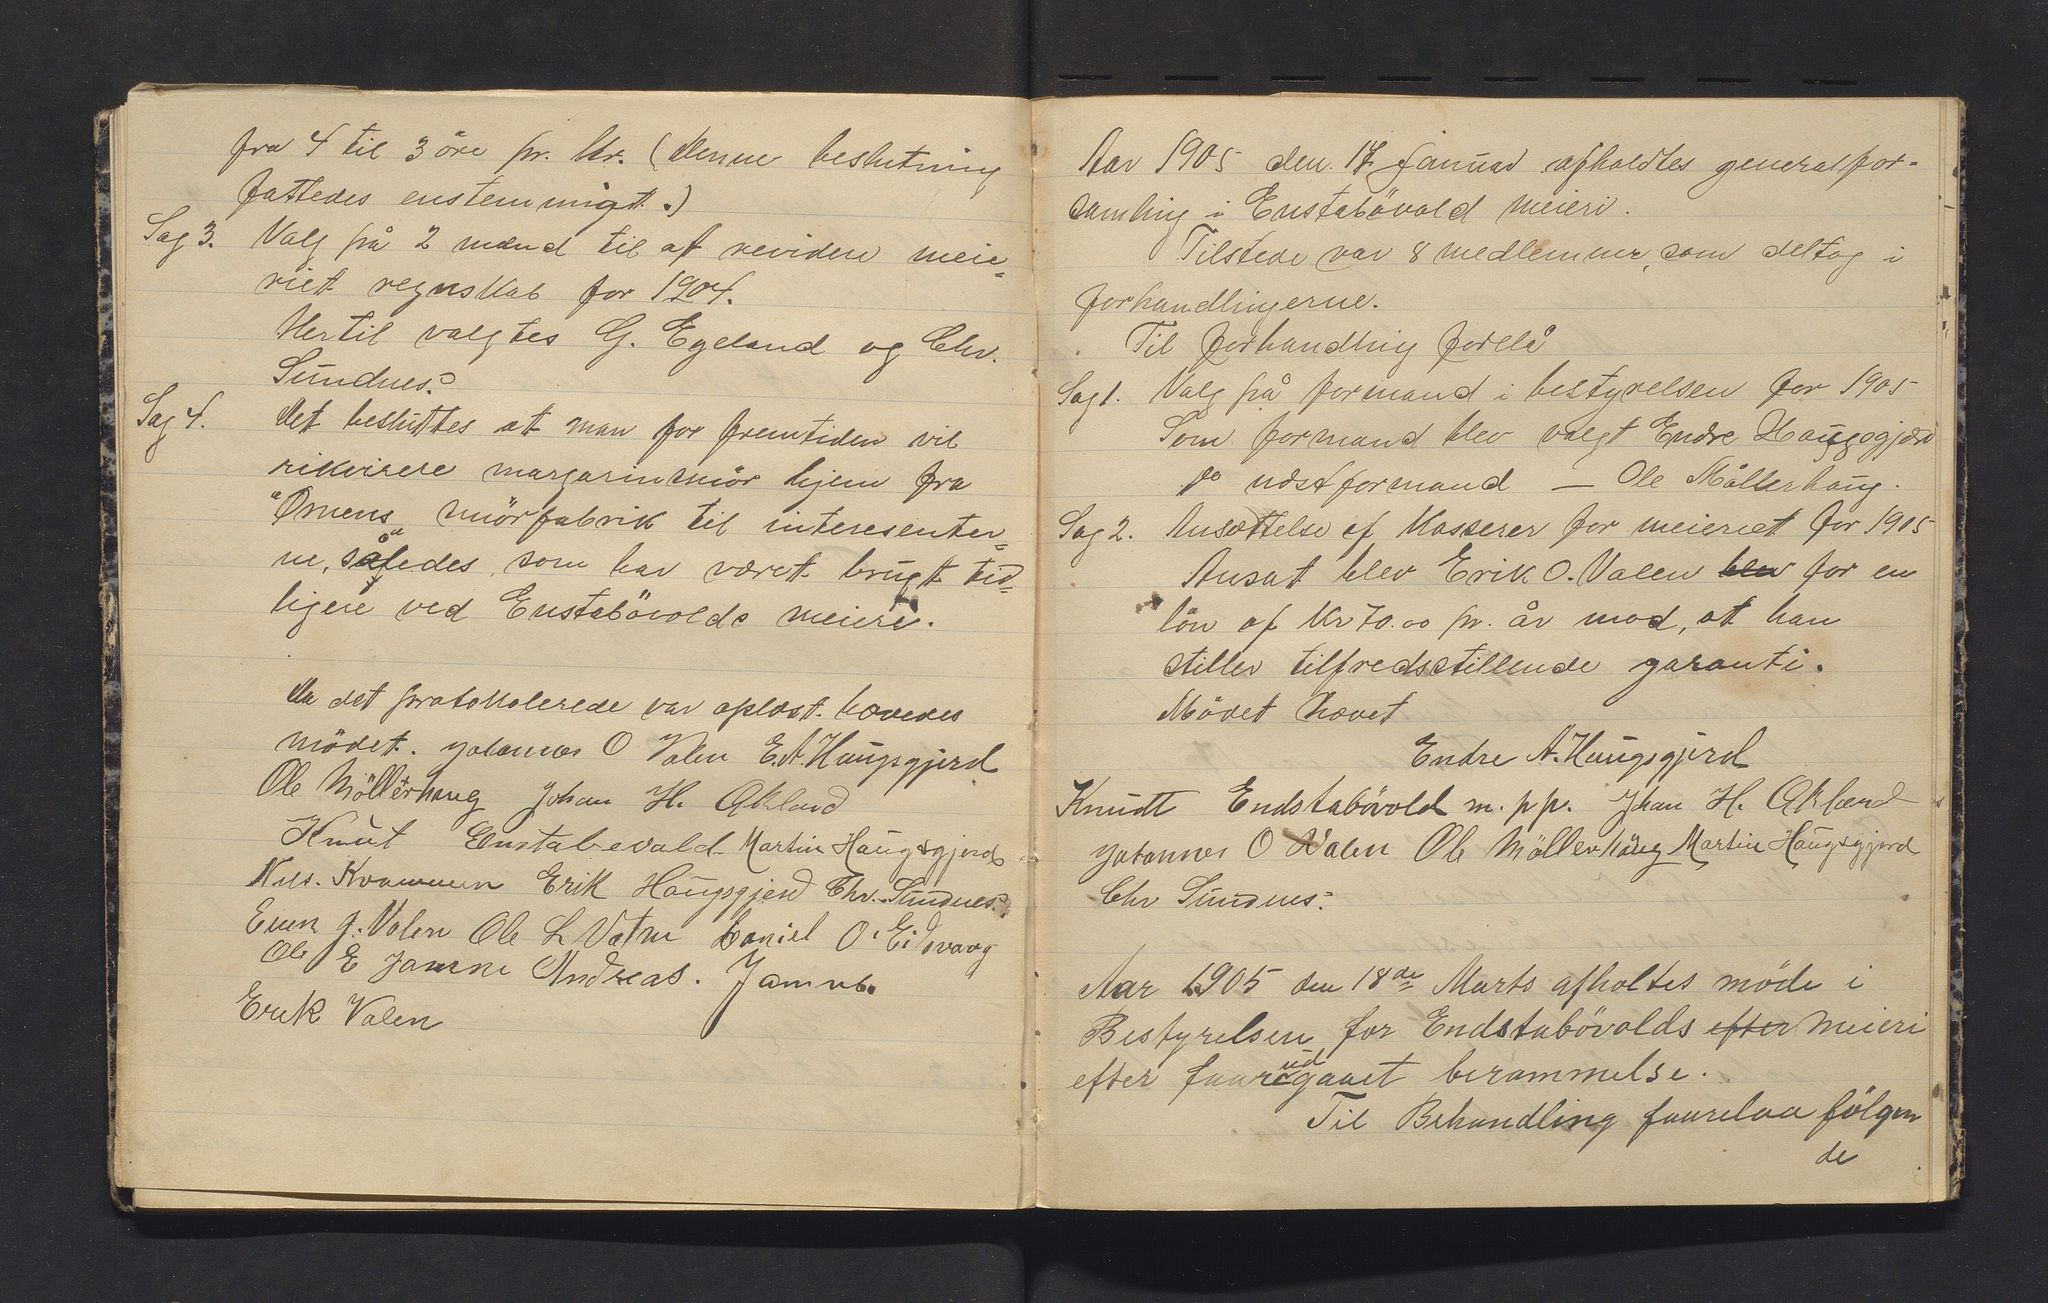 fra 4 til 3 öre pr. Kr. (Denne beslutning
fattedes enstemmigt.)
Sag 3. Valg på 2 mænd til at revidere meie=
riet regnskab for 1904.
Hertil valgtes G. Egeland og Chr.
Sundnes.
Sag 4. Det besluttes at man for fremtiden vil
rikvirere margarinsmör hjem fra
"Ørnens" smörfabrik til interesenter=
ne, således som har været brugt tid=
ligere ved Enstabövolds meieri.
Da det protokolerede var oplæst hævedes
mödet. Johannes O Valen E. A. Haugsgjerd
Ole Möllerhaug Johan H. Økland
Knut Enstabevold Martin Haugsgjerd
Nils. Kvammen Erik Haugsgjerd Chr. Sundnes.
Even J. Valen Ole L Vatne Daniel O. Eidsvaag
Ole E Jamne Andreas. Jamne.
Erik Valen
Aar 1905 den 17 januar afholdtes generalfor-
samling i Enstabövold meieri.
Tilstede var 8 medlemmer, som deltog i
forhandlingerne.
Til forhandling forelå
Sag 1. Valg på formand i bestyrelsen for 1905
Som formand blev valgt Endre Haugsgjerd
do næstformand — Ole Möllerhaug.
Sag 2. Ansættelse af Kasserer for meieriet for 1905
Ansat blev Erik O. Valen blev for en
lön af Kr 70.00 pr. år mod, at han
stiller tilfredsstillende garanti.
Mödet hævet
Endre A. Haugsgjerd
Knudt Endstabövold m. p p. Johan H. Økland
Johannes O Valen Ole Möllerhaug Martin Haugsgjerd
Chr Sundnes.
Aar 1905 den 18de Marts afholtes möde i
Bestyrelsen for Endstabövolds efter meieri
efter foorudgaaet berammelse.
Til Behandling foorelaa fölgen
de